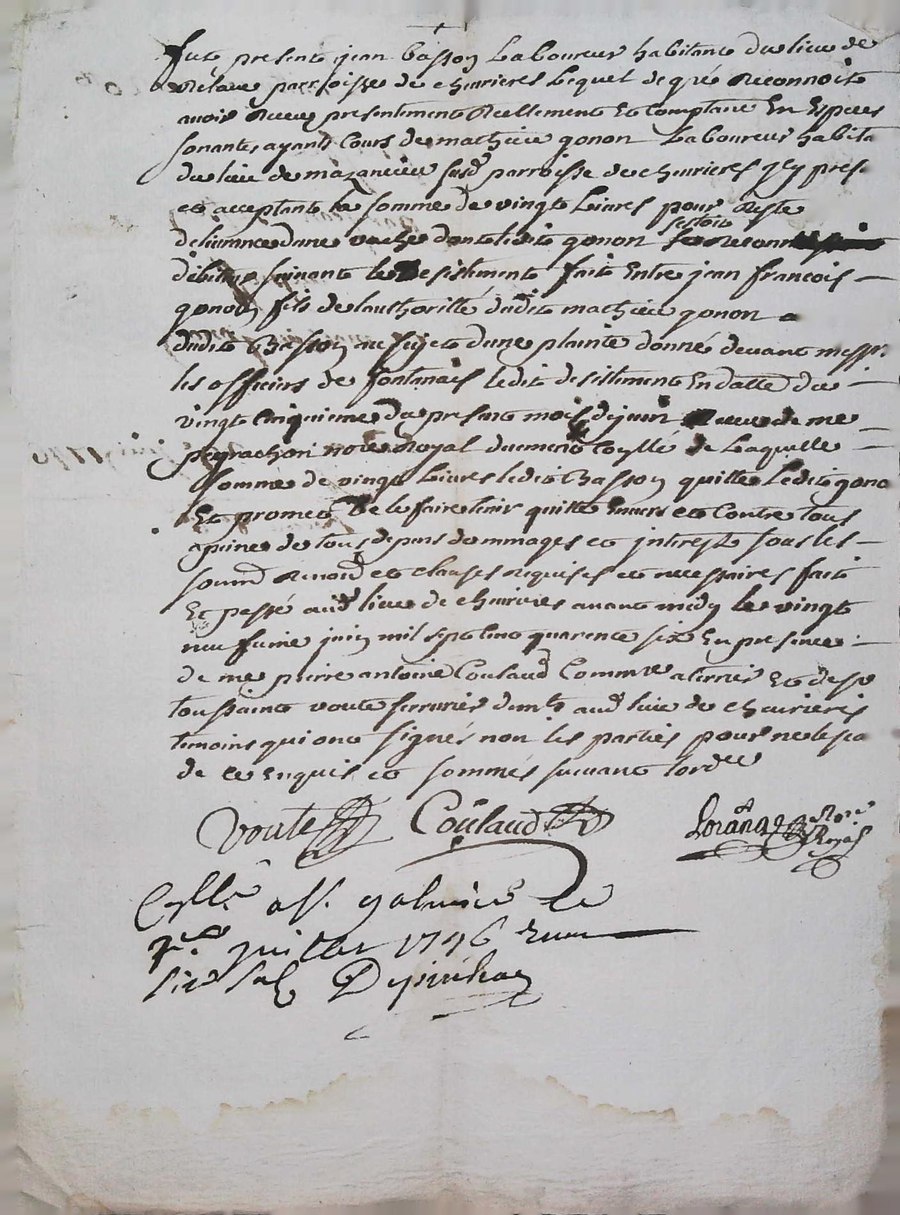 fut present jean basson Laboureur habitant du lieu de
paroisse de cheurieres Lequel de gré Reconnoit
avoir Receu presentement Reellement Et Comptant En Especes
sonantes ayant Cours de mathieu gonon Laboureur habita
du lieu de mazancieu susd parroisse de cheurieres Icy pres.
et acceptant la somme de vingt Livres pour Reste
sestoit
deliurance dune vache dont ledit gonon
debiteur suivant le Desistement fait Entre jean francois
gonon fils de lauthorité dudit mathieu gonon
dudit Basson au sujet dune plainte donné devant messrs.
les officiers de fontanais ledit desistement En datte du
vingt Cinquieme du present mois de juin Receu de me
peyrachon nore Royal duement Coyllé de Laquelle
somme de vingt Livres ledit Basson quitte Ledit gono
Et promet De le faire tenir quitte Envers et Contre tous
apeine de tous depens dommages et interest sous les
soumd Renond et clauses Requises et necessaires fait
Et passé aud lieu de cheurieres avant midy le vingt
neufuieme juin mil sept Cent quarente six En presence
de me pierre antoine Coulaud Commre aterrier Et de sr
toussaint voute serrurier demts aud lieu de cheurieres
temoins qui ont signés non les parties pour ne le sca
de ce Enquis et sommés suivant lordce
Voute Coulaud nore Royal
Coyllé a st. galmier Le
7e. juillet 1746 Receu
six sols